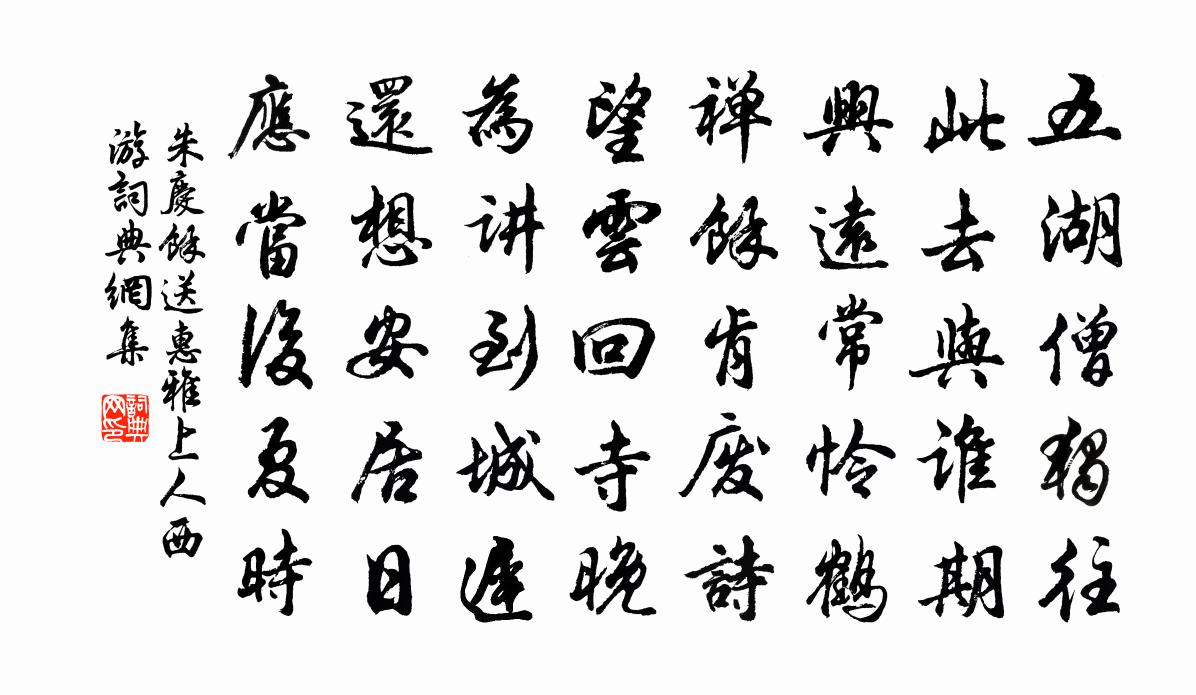 五湖僧獨往
此去與誰期
興遠常憐鶴
禅餘肯废詩
望雲回寺晚
為讲到城遲
還想安居日
應當後夏時
朱慶餘送惠雅上人西
游詞典網集
詞典网印